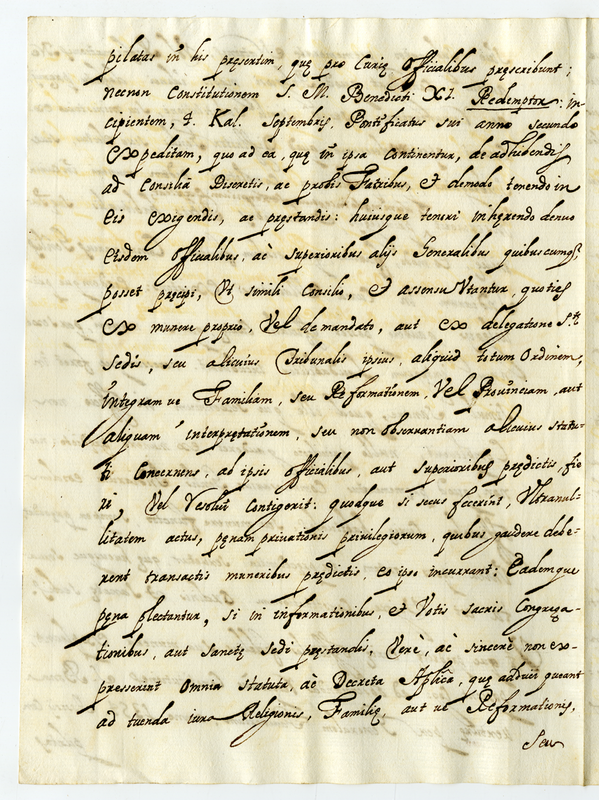 pilatas in his pręsertim, quę pro Curię Officialibus pręscribunt;
necnon Constitutionem S. M. Benedicti XI. Redemptor: in-
cipientem, 4. Kal. Septembris, Pontificatus sui anno secundo
expeditam, quo ad ea, quę in ipsa continentur, de adhibendis
ad Consilia Discretis, ac probis Fratribus, et de modo tenendo in
eis exigendis, ac pręstandis: huiusque tenori inhęrendo denuo
eisdem officialibus, ac superioribus alijs Generalibus quibuscumq;
posset pręcipi, Ut simili Consilio, et assensu Utantur, quoties
ex munere proprio, Vel de mandato, aut ex delegatione S.tę
Sedis, seu alicuius Tribunalis ipsius aliquid totum Ordinem,
integram ue Familiam, seu Reformationem, Vel Prouinciam, aut
aliquam interpretationem, seu non obseruantiam alicuius statu-
ti Concernens, ab ipsis officialibus, aut superioribus prędictis, fie
ri, Vel resolui contigerit: quodque si secus fecerint, Ultra nul-
litatem actus, pęnam priuationis priuilegiorum, quibus gaudere debe-
rent transactis muneribus prędictis, eo ipso incurrant: Eademque
pęna plectantur, si in informationibus, et Votis sacris Congrega-
tionibus, aut Sanctę Sedi pręstandis, Verè, ac sincerè non ex-
presserint Omnia statuta, ac Decreta Aplica, quę adduci queant
ad tuenda iura Religionis, Familię, aut ue Reformationis,
Seu